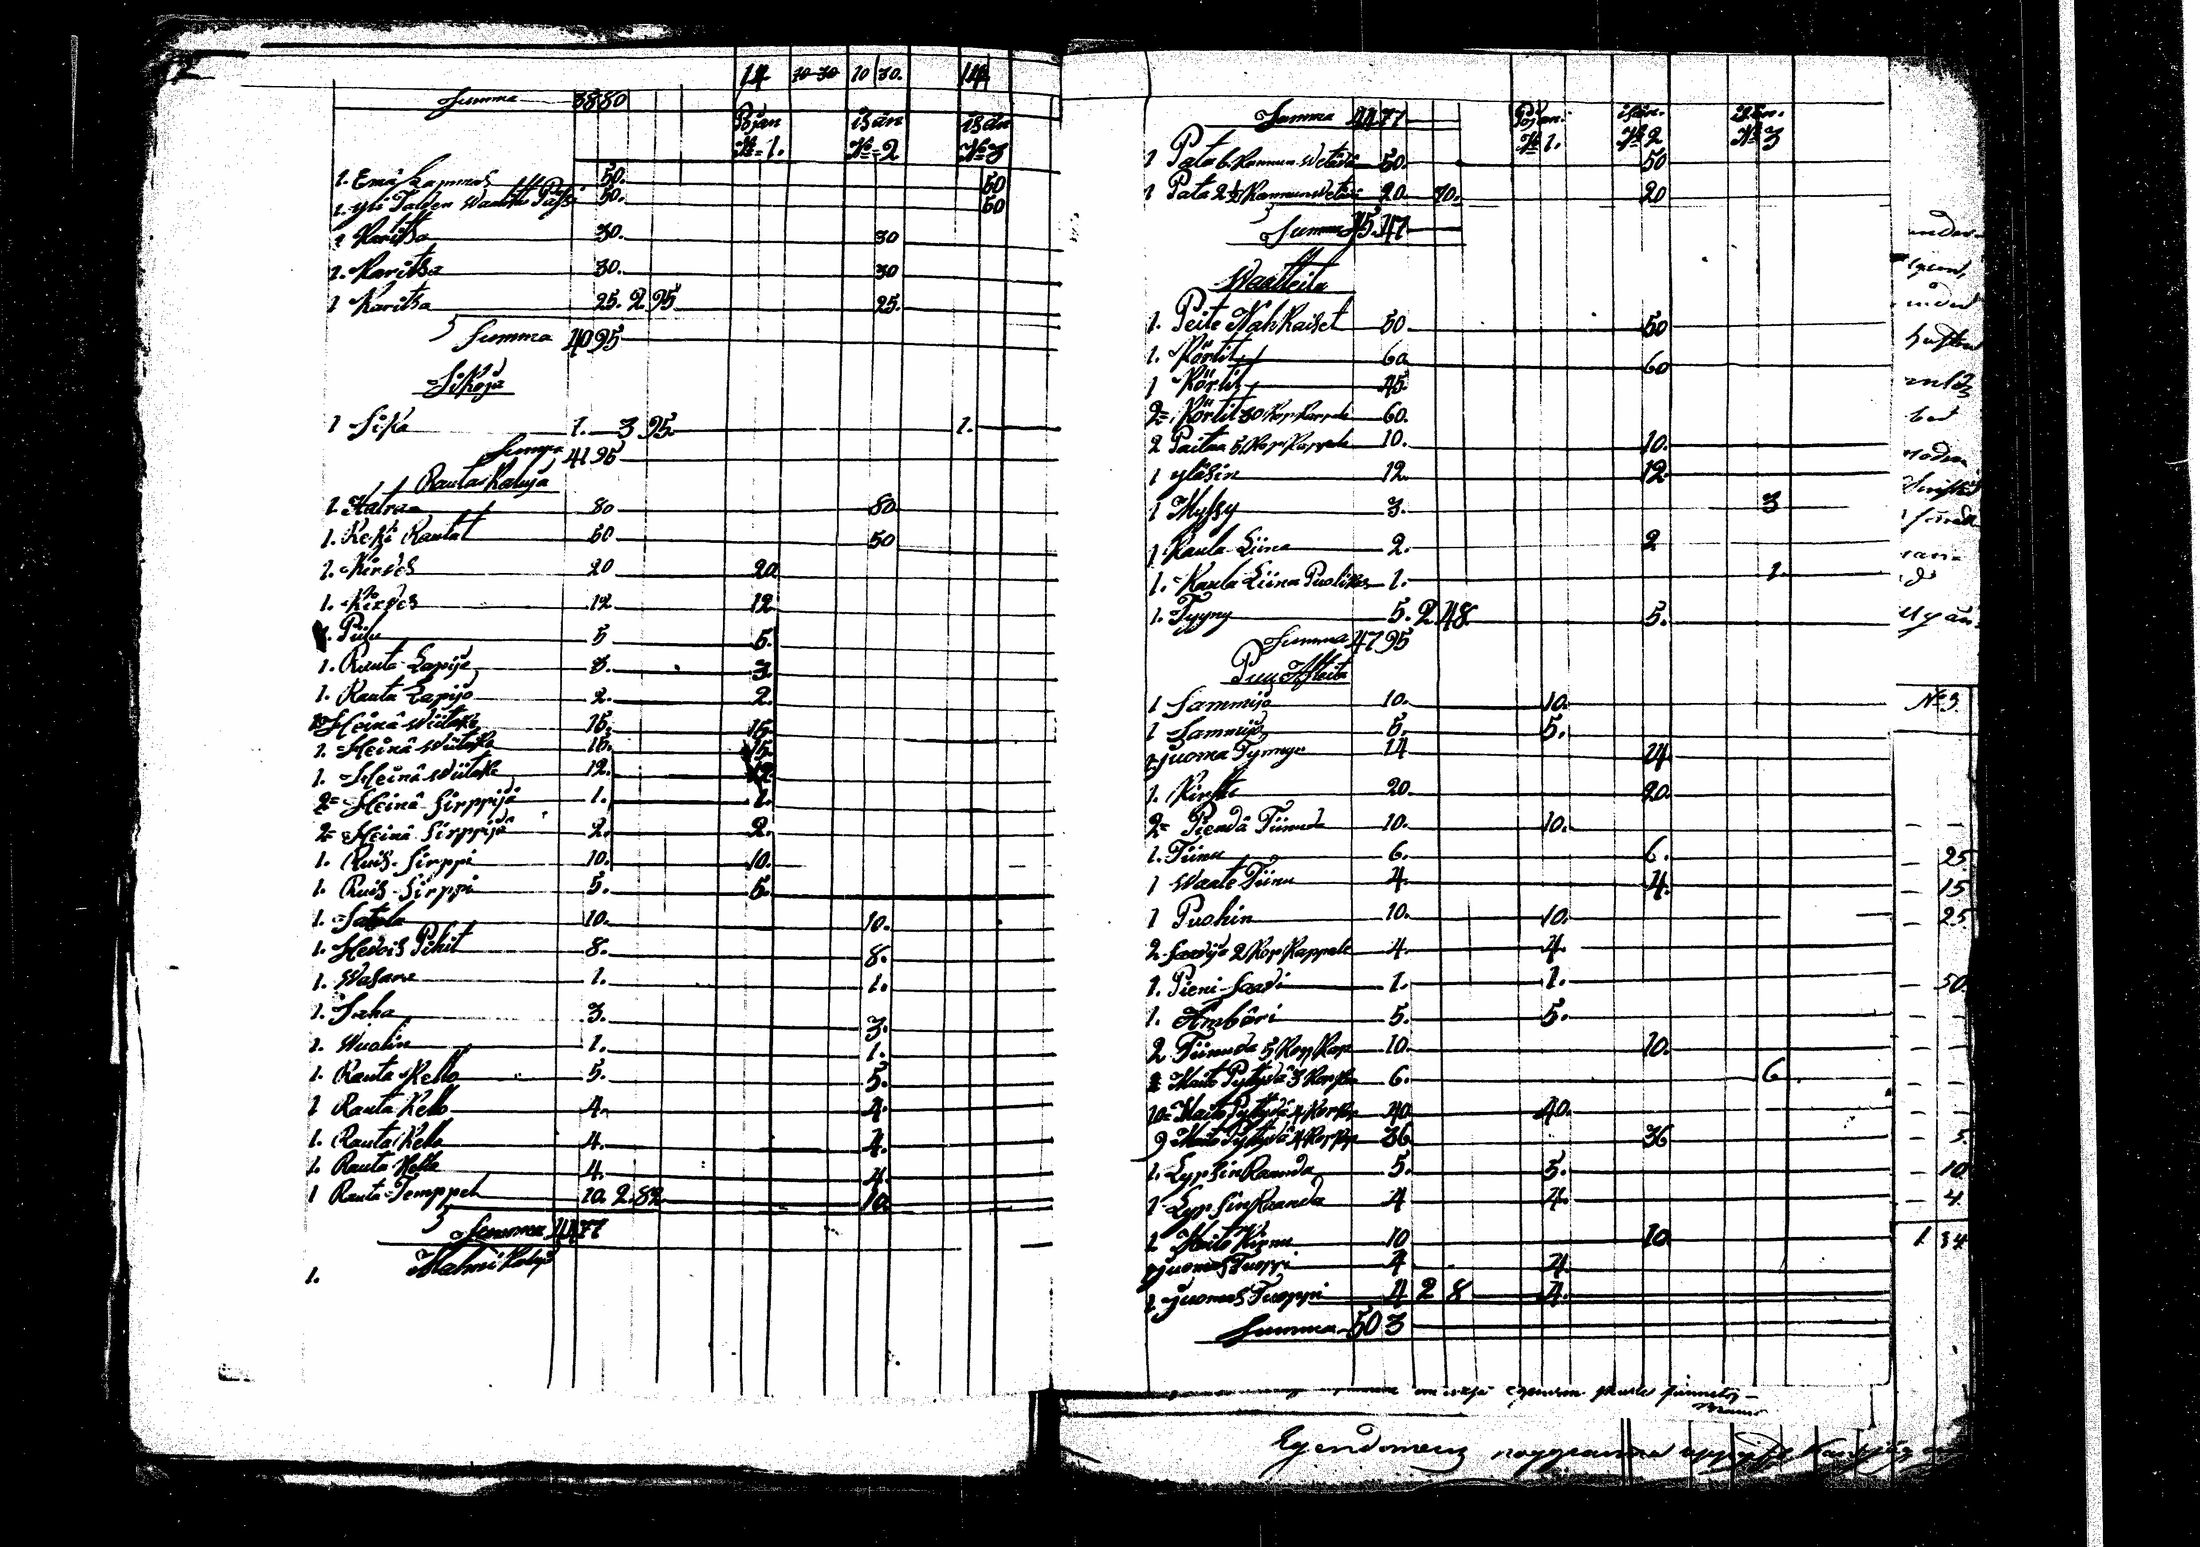 14 30 30 10 30. 14
Summa 38 80
Pojan isän isän
No 1. No 2 No 3
1. Emä Lammas 50. 50
1. yli Talven Wanha Pässi 50. 50
1 Karitsa 30. 30
1. Karitsa 30. 30
1 Karitsa 25. 2 95 25.
Summa 40 95
Sikoja
1 Sika 1. 3 95. 1.
Summa 41 95
Rauta Kaluja
1. Hatraa 80 80
1. Reki Rautat 50 50
1. Kirves 20 20
1. Kirves 12 12
1. Piilu 5 5.
1. Rauta Lapijo 3. 3.
1. Rauta Lapijo 2. 2.
1 Heinä Wiitake 15. 15.
1. Heinä Wiitake 15. 15.
1. Heinä Wiitake 12. 12.
2= Heinä Sirppijä 1. 1.
2= Heinä Sirppijä 2. 2.
1. Ruis Sirppi 10. 10.
1. Ruis Sirppi 5. 5.
1. Satula 10. 10.
1. Hevois Pihit 8. 8.
1. Wasara 1. 1.
1. Saha 3. 3.
1. Wuolin 1. 1.
1. Rauta Kello 5. 5.
1 Rauta Kello 4. 4.
1. Rauta Kello 4. 4.
1. Rauta Kello 4. 4.
1 Rauta Temppel 10. 2.82 10.
Summa 44 77
Malmi Kaluja
1.
Summa 44 77 Pojan isän. isän.
No 1. No 2 No 3
1 Pata 6 Kannun Wetävä 50. 50
1 Pata 2 ½ Kannun Wetävä 20. 70. 20
Summa 45 47
Waatteita
1. Peite Nahkaiset 50 50
1. Körtit 60 60
1 Körtit 45
2= Körtit 30 Kop Kappale 60.
2 Paitaa 5 Kop Kappale 10. 10.
1 yläsin 12. 12.
1 Myssy 3. 3
1 Kaula Liina 2. 2
1. Kaula Liina Puolikas 1. 1.
1. Tyyny 5. 2 48. 5.
Summa 47 95
Puu Asteita
1 Sammijo 10. 10.
1 Sammijo 5. 5.
1 juoma Tynnyr 14 14
1. Kirstu 20 20.
2= Piendä Tiinuda 10. 10.
1. Tiinu 6. 6.
1 Waate Tiinu 4. 4.
1 Puohin 10. 10.
2. Saavija 2 Kop Kappale 4. 4.
1. Pieni Saavi 1. 1.
1. Ämbäri 5. 5.
2 Tiinuda 5 Kop Kap 10. 10.
2 Maito Pytyvä 3 Kop 6. 6
10= Maito Pytyvä 4 Kop 40 40.
9 Maito Pytyvä 4 Kop 36 36
1. Lypsin Raanda 5. 5.
1 Lypsin Raanda 4 4.
1 Maito Kirnu 10 10
1 juomas Tuoppi 4 4.
1 juomas Tuoppi 4 2 8 4.
Summa 50 3
No 3.
25
15
25
50.
5.
10
4.
1 34
Egendomens noggranna